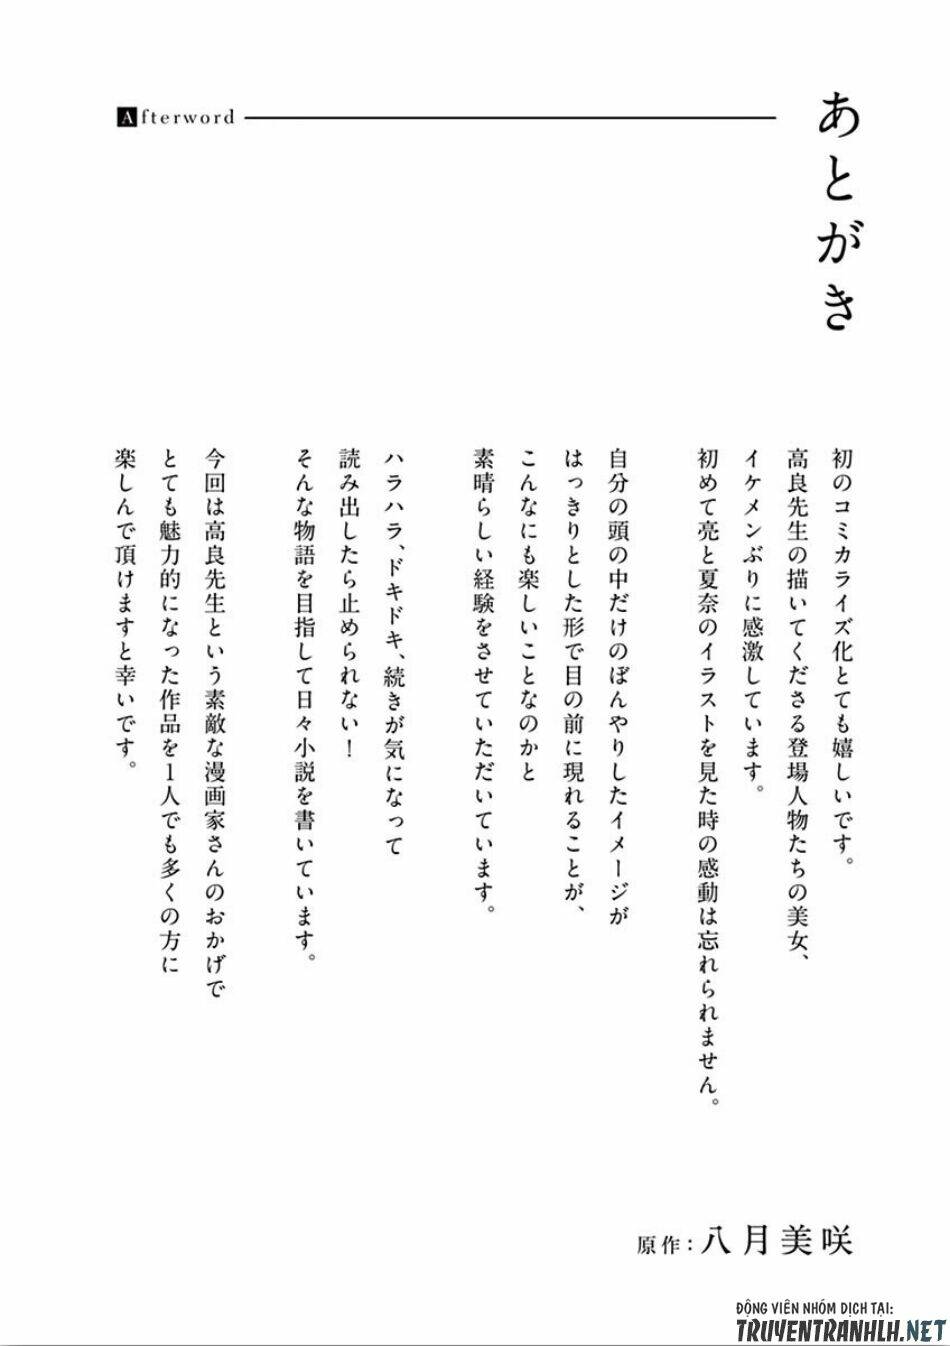 あとがき
Afterword
初のコミカライズ化とても嬉しいです。
高良先生の描いてくださる登場人物たちの美女、
イケメンぶりに感激しています。
初めて亮と夏奈のイラストを見た時の感動は忘れられません。
自分の頭の中だけのぼんやりしたイメージが
はっきりとした形で目の前に現れることが、
こんなにも楽しいことなのかと
素晴らしい経験をさせていただいています。
ハラハラ、ドキドキ、続きが気になって
読み出したら止められない！
そんな物語を目指して日々小説を書いています。
今回は高良先生という素敵な漫画家さんのおかげで
とても魅力的になった作品を1人でも多くの方に
楽しんで頂けますと幸いです。
原作：八月美咲
ĐỘNG VIÊN NHÓM DỊCH TẠI:
TRUYENTRANHLH.NET